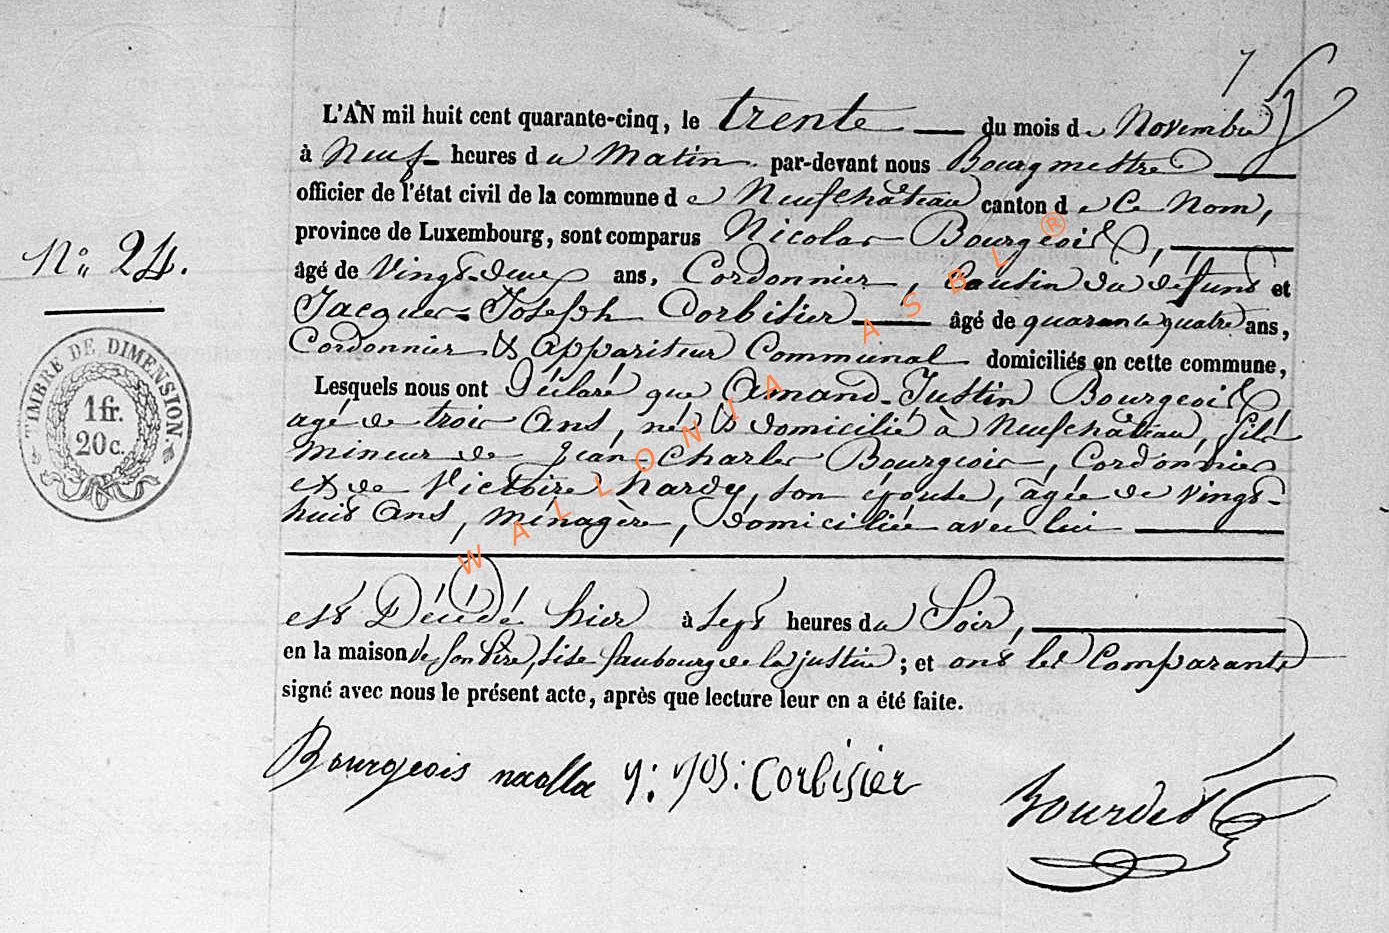 7
L'AN mil huit cent quarante-cinq, le trente du mois de Novembre
à Neuf heures du Matin par-devant nous Bourgmestre
officier de l'état civil de la commune de Neufchâteau canton de Ce Nom,
province de Luxembourg, sont comparus Nicolas Bourgeois,
N° 24.
âgé de Vingt-deux ans, Cordonnier, Cousin du défunt et
Jacques-Joseph Corbisier âgé de quarante quatre ans,
Cordonnier et Appariteur Communal domiciliés en cette commune,
Lesquels nous ont Déclaré que Amand-Justin Bourgeois
agé de trois Ans, né et domicilié à Neufchâteau, fils
mineur de Jean-Charles Bourgeois, Cordonnier
et de Victoire hardy, son épouse, âgée de vingt-
huit Ans, ménagère, domiciliée avec lui
TIMBRE DE DIMENSION.
1 fr.
20 c.
est Décédé hier à sept heures du Soir,
en la maison de son Père, sise faubourg de la justice; et ont les Comparants
signé avec nous le présent acte, après que lecture leur en a été faite.
Bourgeois j: jos: Corbisier
Bourdet
WALLONIA ASBL ®